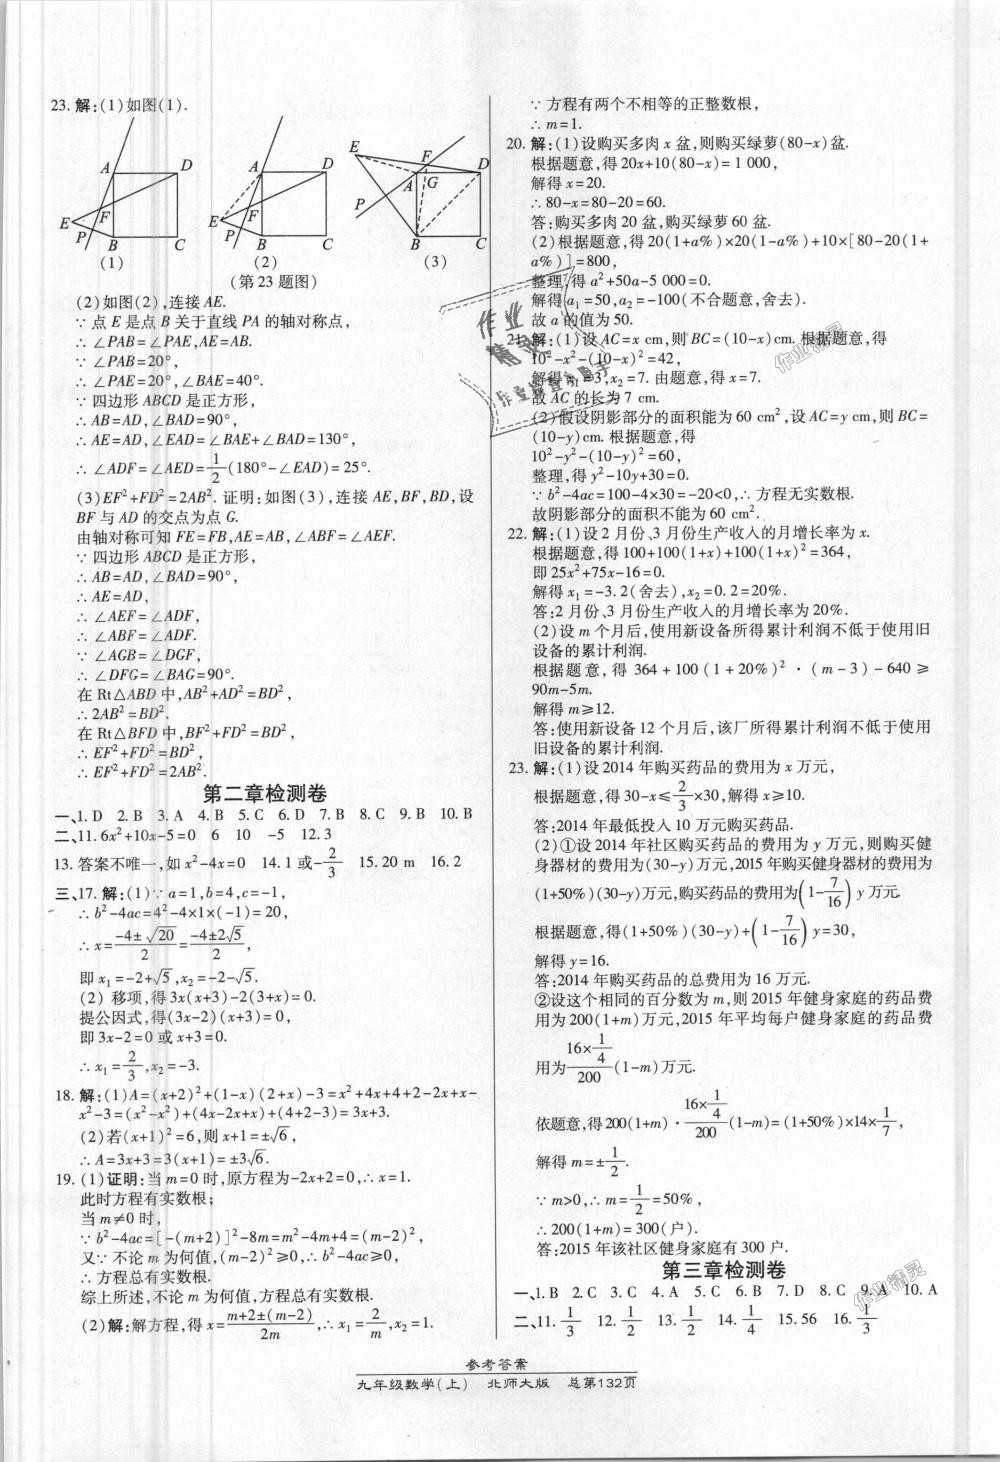 23. 解:(1)如图(1).
A D E F P B C
(1)
A D E F P B C
(2)
E F D A G P B C
(3)
(第 23 题图)
(2)如图(2),连接 AE.
∵ 点 E 是点 B 关于直线 PA 的轴对称点,
∴ ∠PAB=∠PAE,AE=AB.
∵ ∠PAB=20°,
∴ ∠PAE=20°,∠BAE=40°.
∵ 四边形 ABCD 是正方形,
∴ AB=AD,∠BAD=90°,
∴ AE=AD,∠EAD=∠BAE+∠BAD=130°,
∴ ∠ADF=∠AED=1/2(180°-∠EAD)=25°.
(3)EF²+FD²=2AB². 证明:如图(3),连接 AE,BF,BD,设
BF 与 AD 的交点为点 G.
由轴对称可知 FE=FB,AE=AB,∠ABF=∠AEF.
∵ 四边形 ABCD 是正方形,
∴ AB=AD,∠BAD=90°,
∴ AE=AD,
∴ ∠AEF=∠ADF,
∴ ∠ABF=∠ADF.
∵ ∠AGB=∠DGF,
∴ ∠DFG=∠BAG=90°.
在 Rt△ABD 中,AB²+AD²=BD²,
∴ 2AB²=BD².
在 Rt△BFD 中,BF²+FD²=BD²,
∴ EF²+FD²=BD²,
∴ EF²+FD²=2AB².
第二章检测卷
一、1. D 2. B 3. A 4. B 5. C 6. D 7. B 8. C 9. B 10. B
二、11. 6x²+10x-5=0 6 10 -5 12. 3
13. 答案不唯一,如 x²-4x=0 14. 1 或-2/3 15. 20 m 16. 2
三、17. 解:(1)∵ a=1,b=4,c=-1,
∴ b²-4ac=4²-4×1×(-1)=20,
∴ x=(-4±√20)/2=(-4±2√5)/2,
即 x₁=-2+√5,x₂=-2-√5.
(2) 移项,得 3x(x+3)-2(3+x)=0.
提公因式,得(3x-2)(x+3)=0,
即 3x-2=0 或 x+3=0.
∴ x₁=2/3,x₂=-3.
18. 解:(1)A=(x+2)²+(1-x)(2+x)-3=x²+4x+4+2-2x+x-
x²-3=(x²-x²)+(4x-2x+x)+(4+2-3)=3x+3.
(2)若(x+1)²=6,则 x+1=±√6,
∴ A=3x+3=3(x+1)=±3√6.
19. (1)证明:当 m=0 时,原方程为-2x+2=0,∴ x=1.
此时方程有实数根;
当 m≠0 时,
∵ b²-4ac=[-(m+2)]²-8m=m²-4m+4=(m-2)²,
又∵ 不论 m 为何值,(m-2)²≥0,∴ b²-4ac≥0,
∴ 方程总有实数根.
综上所述,不论 m 为何值,方程总有实数根.
(2)解:解方程,得 x=(m+2±(m-2))/2m,∴ x₁=2/m,x₂=1.
∵ 方程有两个不相等的正整数根,
∴ m=1.
20. 解:(1)设购买多肉 x 盆,则购买绿萝(80-x)盆.
根据题意,得 20x+10(80-x)=1 000,
解得 x=20.
∴ 80-x=80-20=60.
答:购买多肉 20 盆,购买绿萝 60 盆.
(2)根据题意,得 20(1+a%)×20(1-a%)+10×[80-20(1+
a%)]=800,
整理,得 a²+50a-5 000=0.
解得 a₁=50,a₂=-100(不合题意,舍去).
故 a 的值为 50.
21. 解:(1)设 AC=x cm,则 BC=(10-x)cm. 根据题意,得
10²-x²-(10-x)²=42,
解得 x₁=3,x₂=7. 由题意,得 x=7.
故 AC 的长为 7 cm.
(2)假设阴影部分的面积能为 60 cm²,设 AC=y cm,则 BC=
(10-y)cm. 根据题意,得
10²-y²-(10-y)²=60,
整理,得 y²-10y+30=0.
∵ b²-4ac=100-4×30=-20<0,∴ 方程无实数根.
故阴影部分的面积不能为 60 cm².
22. 解:(1)设 2 月份、3 月份生产收入的月增长率为 x.
根据题意,得 100+100(1+x)+100(1+x)²=364,
即 25x²+75x-16=0.
解得 x₁=-3.2(舍去),x₂=0.2=20%.
答:2 月份、3 月份生产收入的月增长率为 20%.
(2)设 m 个月后,使用新设备所得累计利润不低于使用旧
设备的累计利润.
根据题意,得 364+100(1+20%)²·(m-3)-640≥
90m-5m.
解得 m≥12.
答:使用新设备 12 个月后,该厂所得累计利润不低于使用
旧设备的累计利润.
23. 解:(1)设 2014 年购买药品的费用为 x 万元,
根据题意,得 30-x≤2/3×30,解得 x≥10.
答:2014 年最低投入 10 万元购买药品.
(2)①设 2014 年社区购买药品的费用为 y 万元,则购买健
身器材的费用为(30-y)万元,2015 年购买健身器材的费用为
(1+50%)(30-y)万元,购买药品的费用为(1-7/16)y 万元.
根据题意,得(1+50%)(30-y)+(1-7/16)y=30,
解得 y=16.
答:2014 年购买药品的总费用为 16 万元.
②设这个相同的百分数为 m,则 2015 年健身家庭的药品费
用为 200(1+m)万元,2015 年平均每户健身家庭的药品费
用为(16×1/4)/200(1-m)万元.
依题意,得 200(1+m)·(16×1/4)/200(1-m)=(1+50%)×14×1/7,
解得 m=±1/2.
∵ m>0,∴ m=1/2=50%,
∴ 200(1+m)=300(户).
答:2015 年该社区健身家庭有 300 户.
第三章检测卷
一、1. B 2. C 3. C 4. A 5. C 6. B 7. D 8. C 9. A 10. A
二、11. 1/3 12. 1/2 13. 1/2 14. 1/4 15. 56 16. 1/3
参考答案
九年级数学(上) 北师大版 总第132页
作业精灵
作业检查小助手
作业精灵
作业精灵